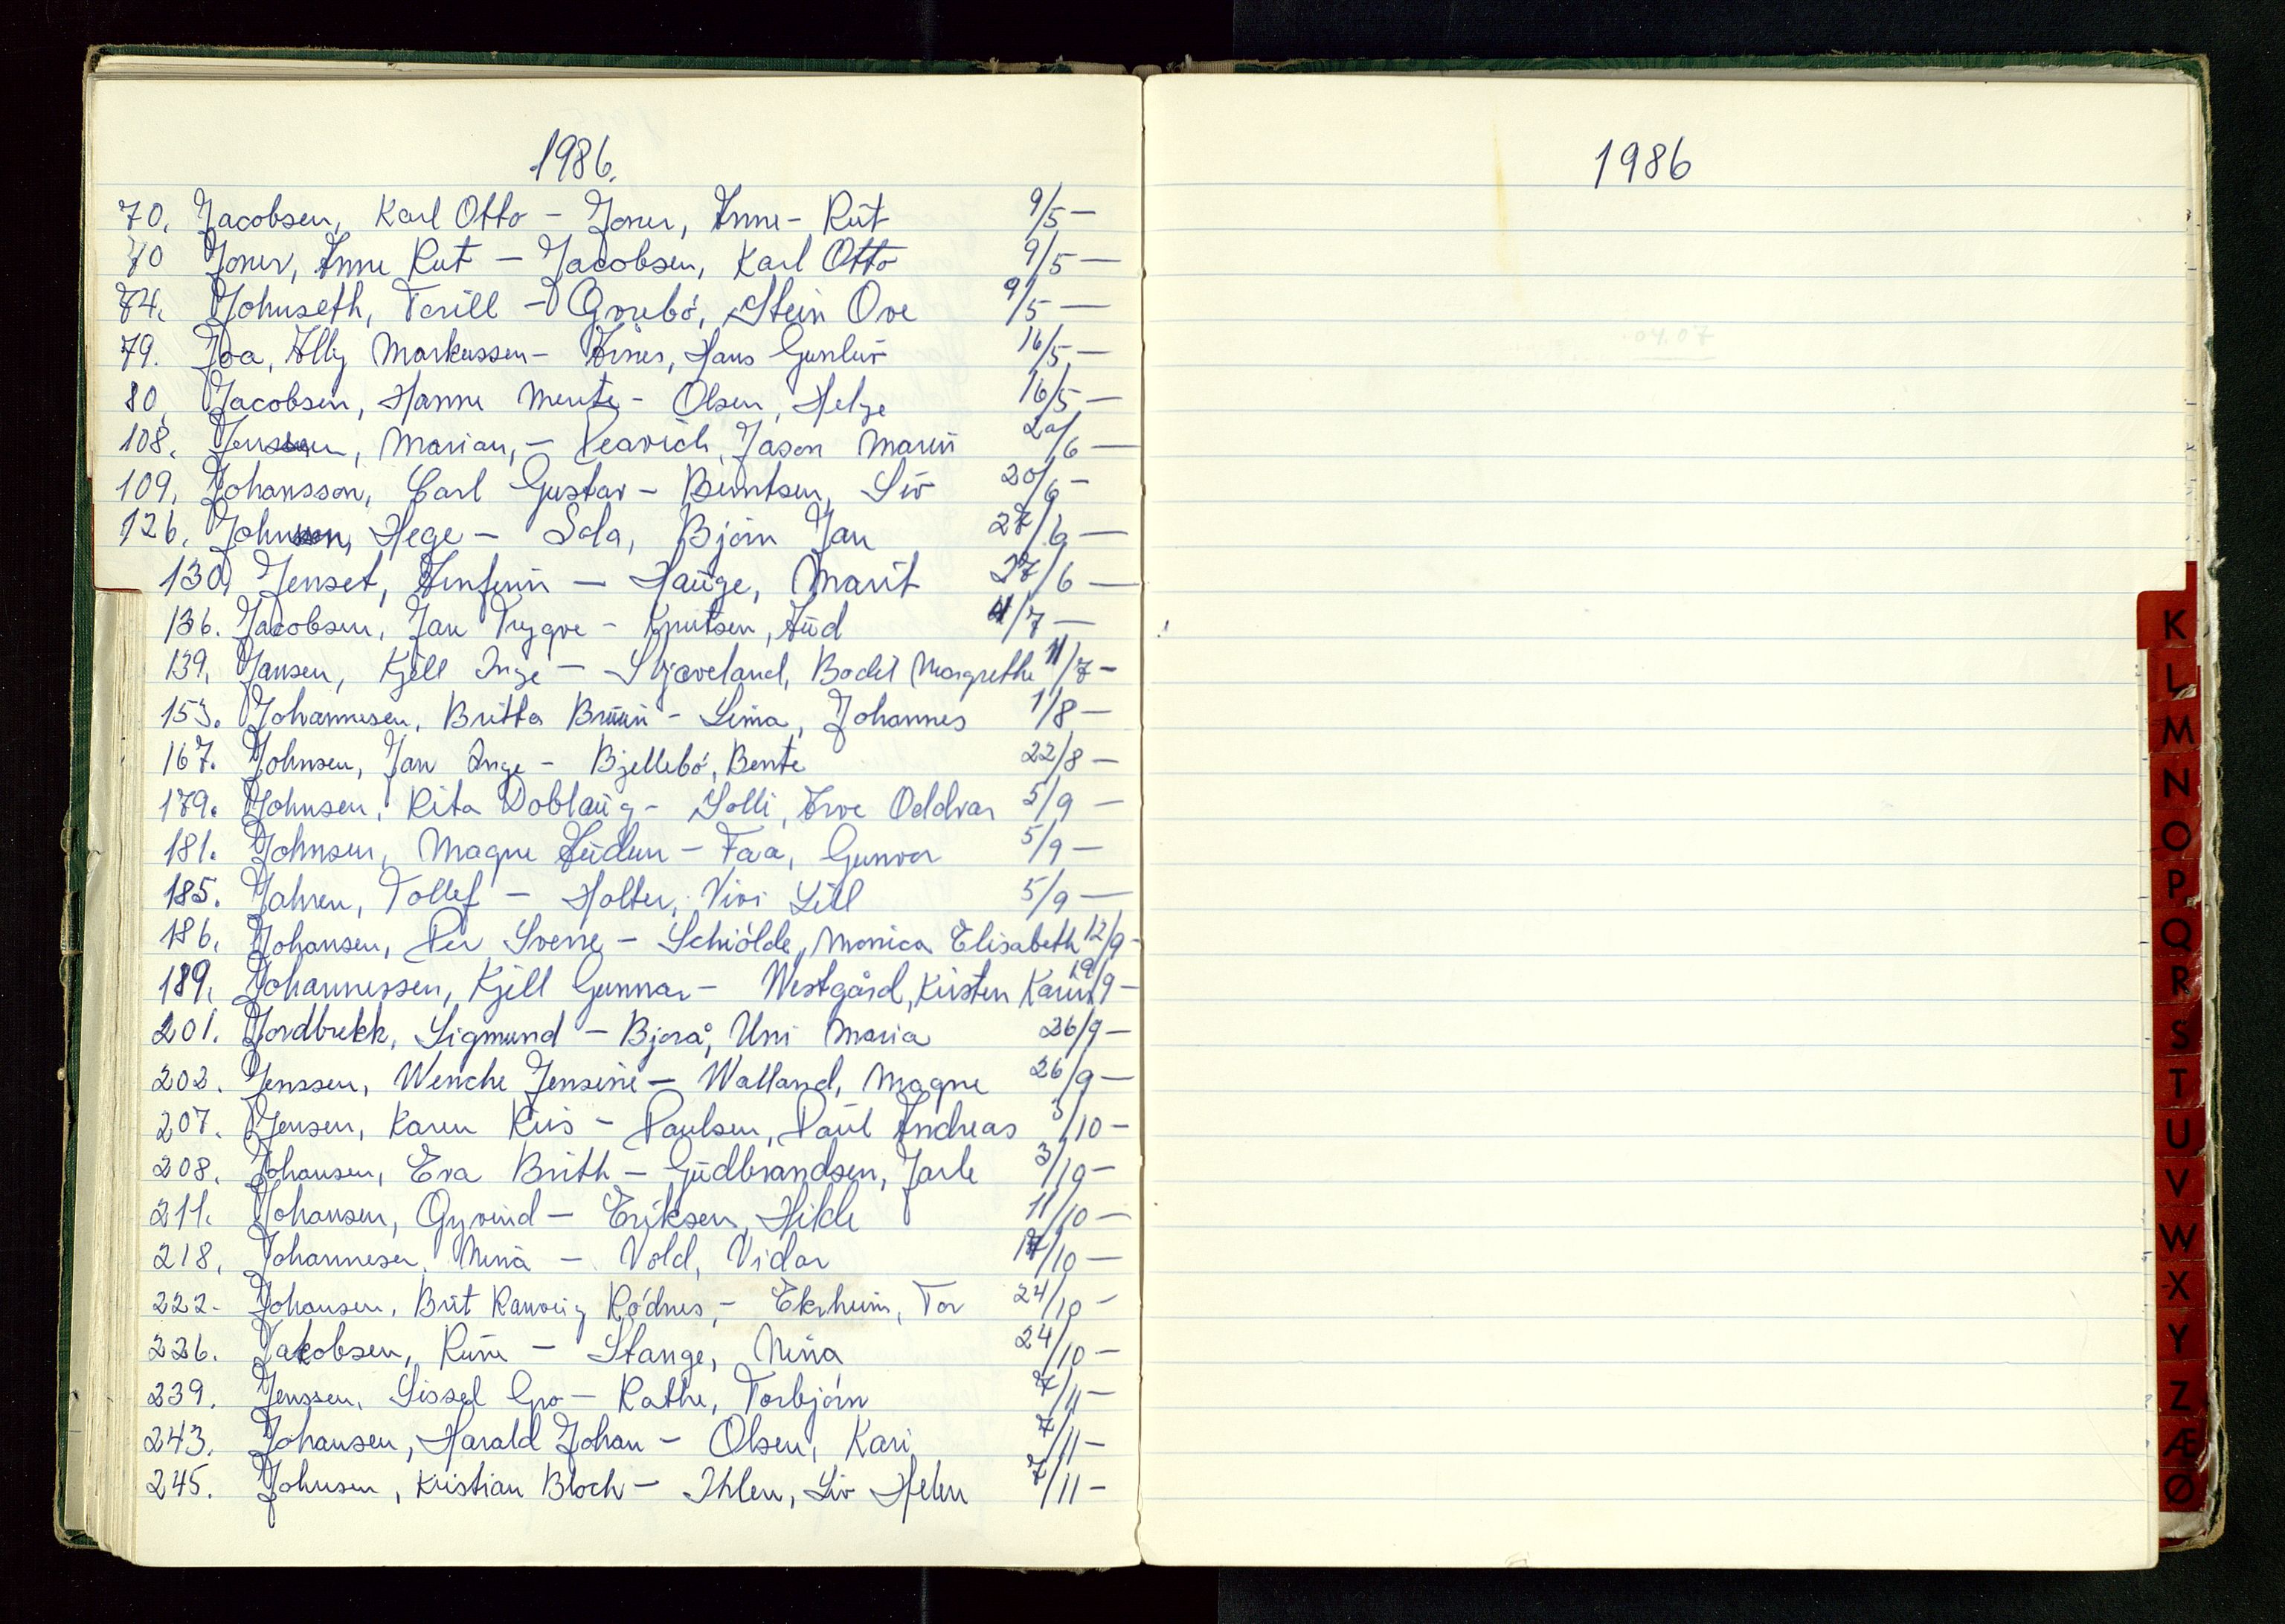 1986.
70. Jacobsen, Karl Otto - Joner, Anne-Rut 9/5 -
70 Joner, Anne Rut - Jacobsen, Karl Otto 9/5 -
74. Johnseth, Torill - Øvrebö, Stein Ove 9/5 -
79. Joa, Ally Markussen - Årnes, Hans Gunnar 16/5 -
80. Jacobsen, Hanne Merete - Olsen, Helge 16/5 -
108. Jensen, Marian, - Peavich, Jason Marin 20/6 -
109. Johansson, Carl Gustav - Berntsen, Siv 20/6 -
126. Johnsen, Hege - Sola, Björn Jan 27/6 -
130. Jenset, Arnfinn - Hauge, Marit 27/6 -
136. Jacobsen, Jan Trygve - Knutsen, Aud 4/7 -
139. Jansen, Kjell Inge - Skjæveland, Bodil Margrethe 11/7 -
153. Johannesen, Britta Bruun - Lima, Johannes 1/8 -
167. Johnsen, Jan Inge - Bjellebö, Bente 22/8 -
179. Johnsen, Rita Doblaug - Solli, Arve Oddvar 5/9 -
181. Johnsen, Magne Audun - Faa, Gunvor 5/9 -
185. Jahren, Tollef - Holter, Vivi Lill 5/9 -
186. Johansen, Per Sverre - Schiölde, Monica Elisabeth 12/9 -
189. Johannessen, Kjell Gunnar - Westgård, Kirsten Karin 19/9 -
201. Jordbrekk, Sigmund - Bjorå, Uni Maria 26/9 -
202. Jenssen, Wenche Jensine - Walland, Magne 26/9 -
207. Jensen, Karen Kris - Paulsen, Paul Andreas 3/10 -
208. Johansen, Eva Brith - Gudbrandsen, Jarle 3/10 -
211. Johansen, Öyvind - Eriksen, Hilde 11/10 -
218. Johannesen, Nina - Vold, Vidar 17/10 -
222. Johansen, Brit Ranveig Rödnes, - Ekrheim, Tor 24/10 -
226. Jakobsen, Rune - Stange, Nina 24/10 -
239. Jenssen, Sissel Gro - Rathe, Torbjörn 7/11 -
243. Johansen, Harald Johan - Olsen, Kari 7/11 -
245. Johnsen, Kristian Bloch - Ihlen, Liv Helen 7/11 -
1986
K
L
M
N
O
P
Q
R
S
T
U
V
W
X
Y
Z
Æ
Ø